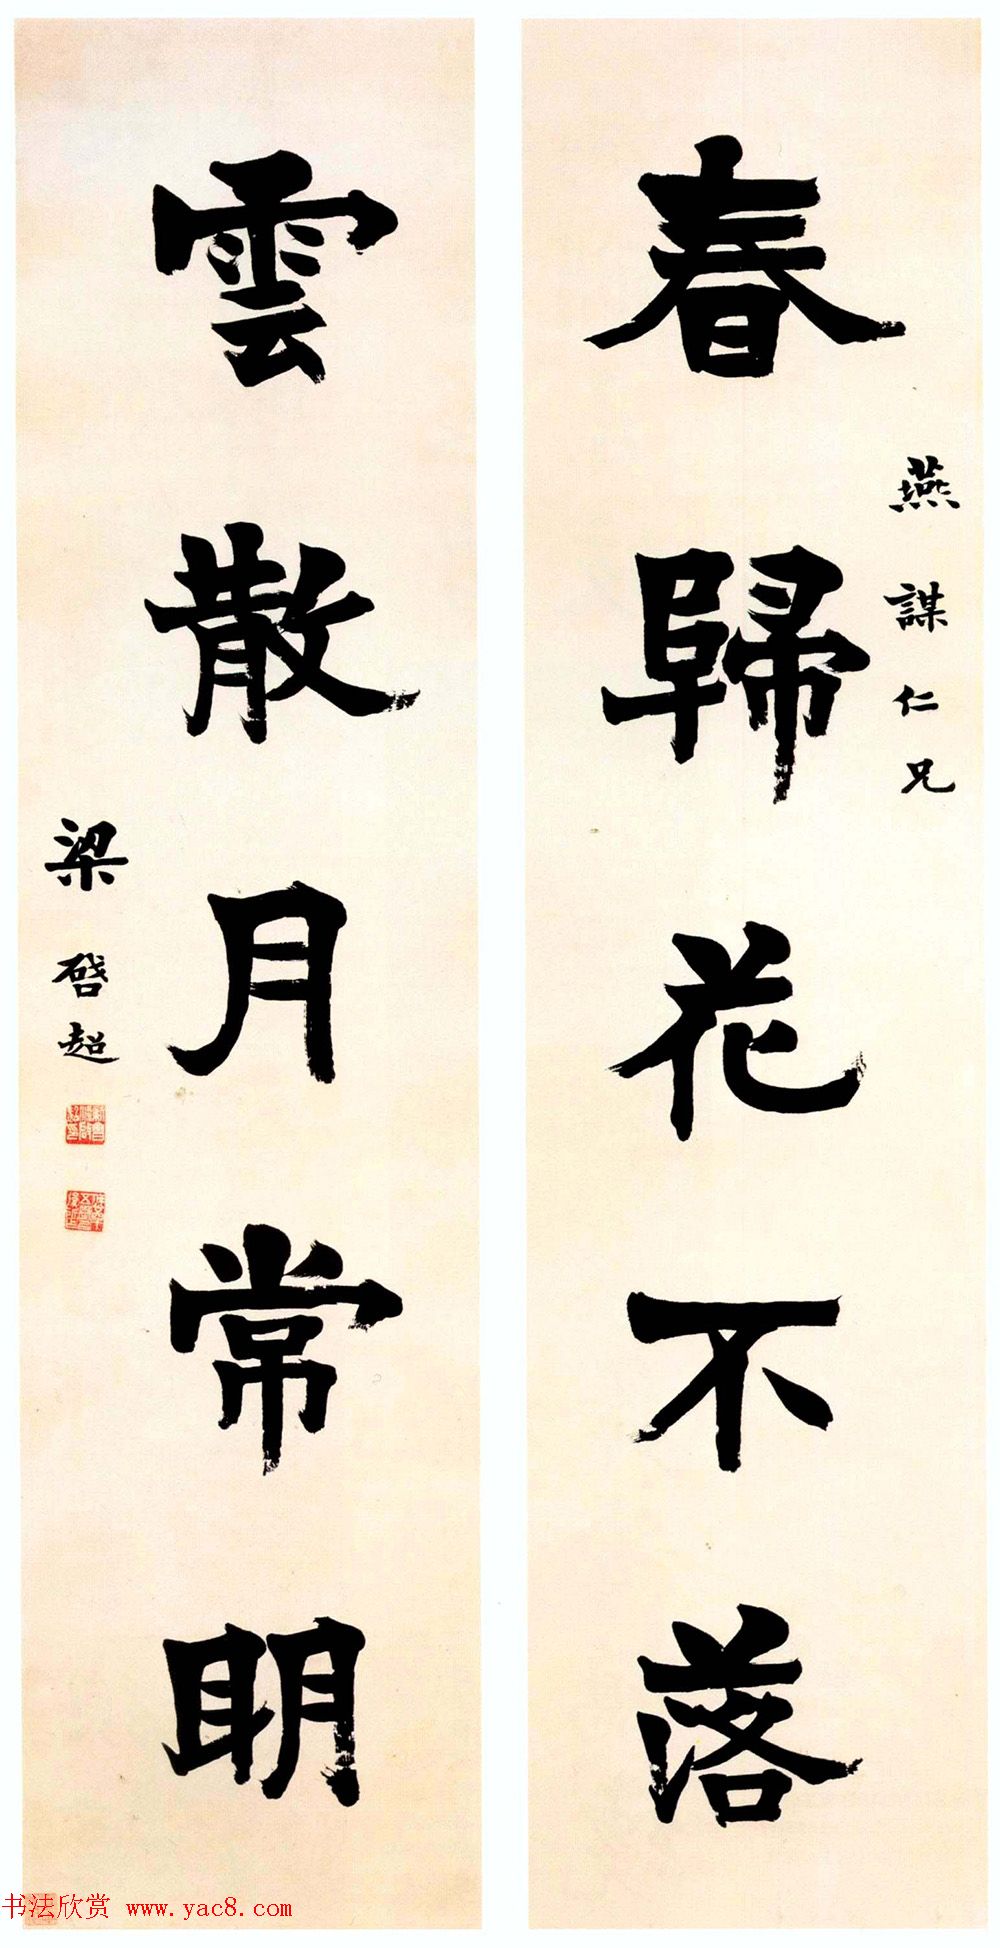 燕謀仁兄
春歸花不落
雲散月常明
梁啓超
书法欣赏 www.yac8.com